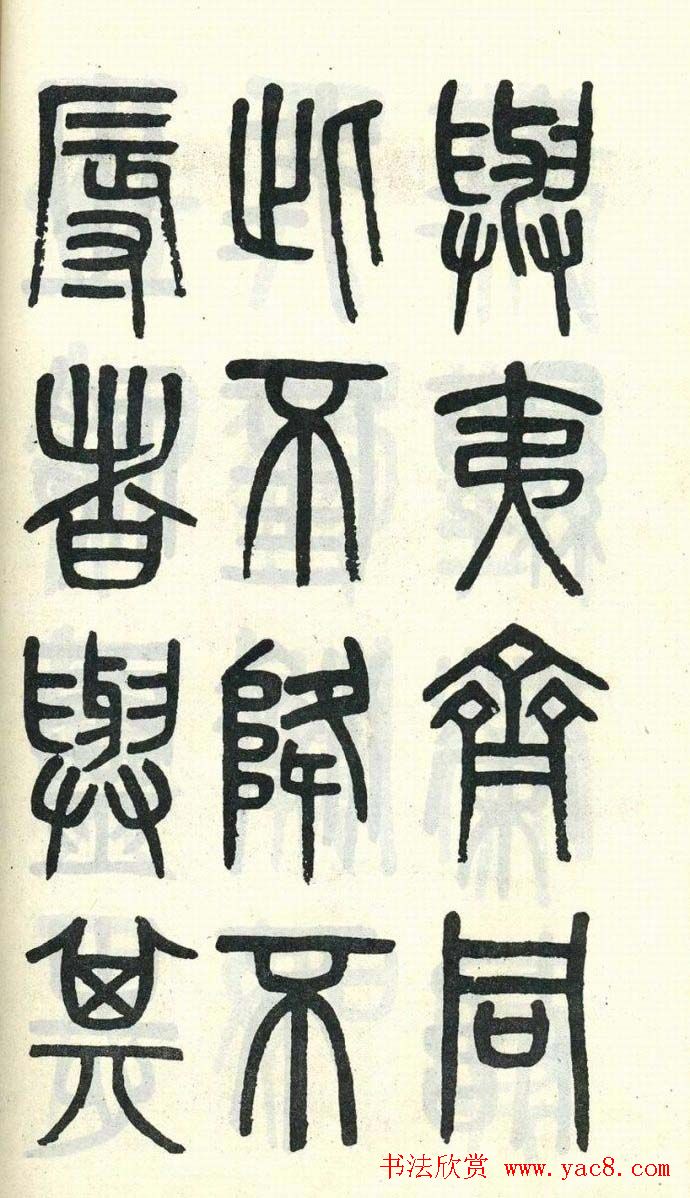 與夷齊同
此不降不
辱者與其
书法欣赏 www.yac8.com